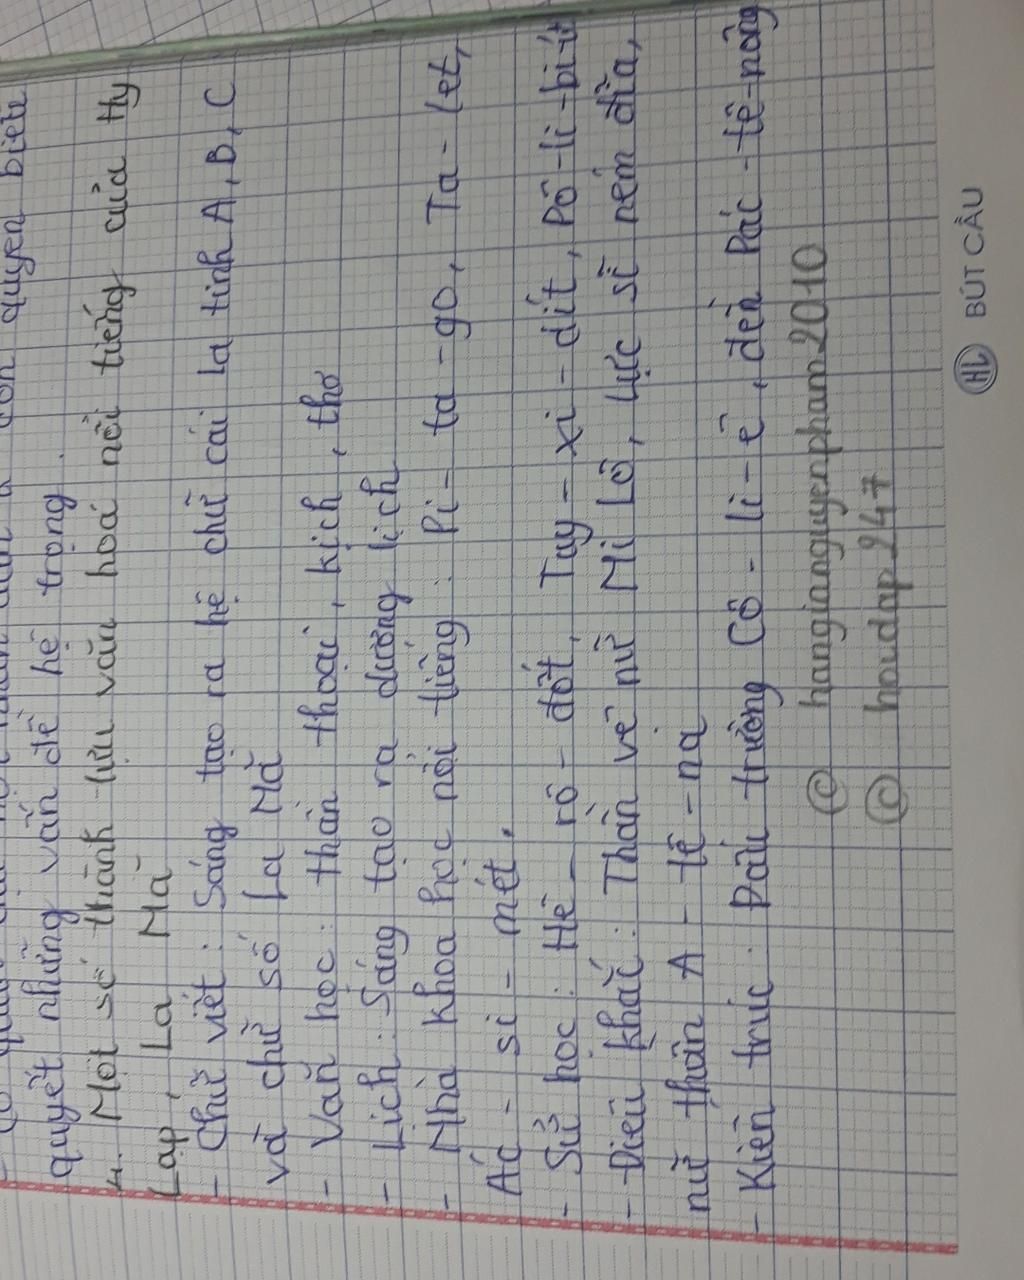 quyền biểu
quyết những vấn đề hệ trọng.
4. Một số thành tựu văn hoá nổi tiếng của Hy
Lạp, La Mã
- Chữ viết: Sáng tạo ra hệ chữ cái La tinh A, B, C
và chữ số La Mã
- Văn học: thần thoại, kịch, thơ
- Lịch: Sáng tạo ra dương lịch
- Nhà khoa học nổi tiếng: Pi-ta-go, Ta-let,
Ác-si-mét.
- Sử học: Hê-rô-đốt, Tuy-xi-dít, Pô-li-bi-út
- Điêu khắc: Thần vệ nữ Mi Lô, lực sĩ ném đĩa,
nữ thần A-tê-na
- Kiến trúc: Đấu trường Cô-li-ê, đền Pác-tê-nông
© hangiangnguyenpham2010
© hoidap247
HL BÚT CẦU